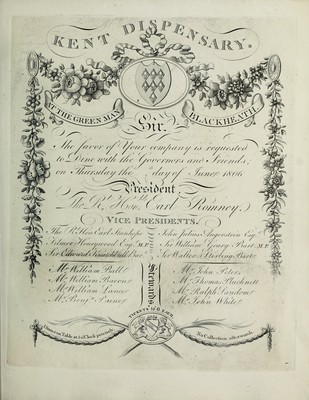 KENT DISPENSARY.
AT THE GREEN MAN BLACKHEATH
Sir.
The favor of Your company is requested
to Dine with the Governors and Friends,
on Thursday the day of June 1806
President
The Rt. Honble. Earl Romney.
VICE PRESIDENTS.
The Rt. Hon. Earl Stanhope John Julius Angerstein Esqr.
Filmer Honeywood Esqr. M.P. Sir William Geary Bart. M.P.
Sir Edward Knatchbull Bart. Sir Walter Stirling Bart.
Stewards
Mr. William Ball Mr. John Peter
Mr. William Bacon Mr. Thomas Plucknett
Mr. William Mr. Ralph
Mr. Benjn. Paine Mr. John White
TICKETS
Dinner on Table at o'Clock precisely No Collection afterwards